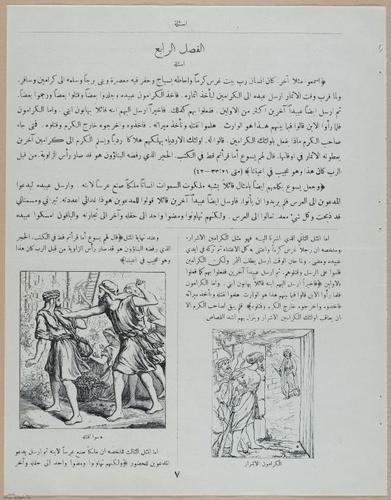 اسئلة
الفصل الرابع
اسئلة
﴿اسمعوا مثلا آخر. كان انسان رب بيت غرس كرماً واحاطه بسياج وحفر فيه معصرة وبنى برجاً وسلمه الى كرامين وسافر.
ولما قرب وقت الاثمار ارسل عبيده الى الكرامين ليأخذ اثماره. فاخذ الكرامون عبيده وجلدوا بعضاً وقتلوا بعضاً ورجموا بعضاً.
ثم ارسل ايضاً عبيداً آخرين اكثر من الاولين. ففعلوا بهم كذلك. فاخيراً ارسل اليهم ابنه قائلا يهابون ابني. واما الكرامون
فلما رأوا الابن قالوا فيما بينهم هذا هو الوارث. هلموا نقتله ونأخذ ميراثه. فاخذوه واخرجوه خارج الكرم وقتلوه. فمتى جاء
صاحب الكرم ماذا يفعل باولئك الكرامين. قالوا له. اولئك الاردياء يهلكهم هلاكاً ردياً ويسلم الكرم الى كرامين آخرين
يعطونه الاثمار في اوقاتها. قال لهم يسوع أما قرأتم قط في الكتب. الحجر الذي رفضه البناؤون هو قد صار رأس الزاوية. من قبل
الرب كان هذا وهو عجيب في اعيننا﴾ (متى ٢١:٣٣–٤٢)
﴿وجعل يسوع يكلمهم ايضاً بامثال قائلا يشبه ملكوت السموات انساناً ملكاً صنع عرساً لابنه. وارسل عبيده ليدعوا
المدعوين الى العرس فلم يريدوا ان يأتوا. فارسل ايضاً عبيداً آخرين قائلا قولوا للمدعوين هوذا غدائي اعددته. ثيراني ومسمناتي
قد ذبحت وكل شيء معد. تعالوا الى العرس. ولكنهم تهاونوا ومضوا واحد الى حقله وآخر الى تجارته والباقون امسكوا عبيده
اما المثل الثاني الذي اشرنا اليه فهو مثل الكرامين الاشرار.
عبيده ومضى. ولما حان الوقت ارسل يطلب الثمر ولكن الكرامين
فاخذوه واخرجوه خارج الكرم وقتلوه﴾
الكرامون الاشرار
وعند نهاية المثل ﴿قال لهم يسوع أما قرأتم قط في الكتب. الحجر
الذي رفضه البناؤون هو قد صار رأس الزاوية من قبل الرب كان هذا
وهو عجيب في اعيننا﴾
هلموا نقتله
اما المثل الثالث فملخصه ان ملكاً صنع عرساً لابنه ثم ارسل يدعو
المدعوين للحضور ﴿ولكنهم تهاونوا ومضوا واحد الى حقله وآخر
٧